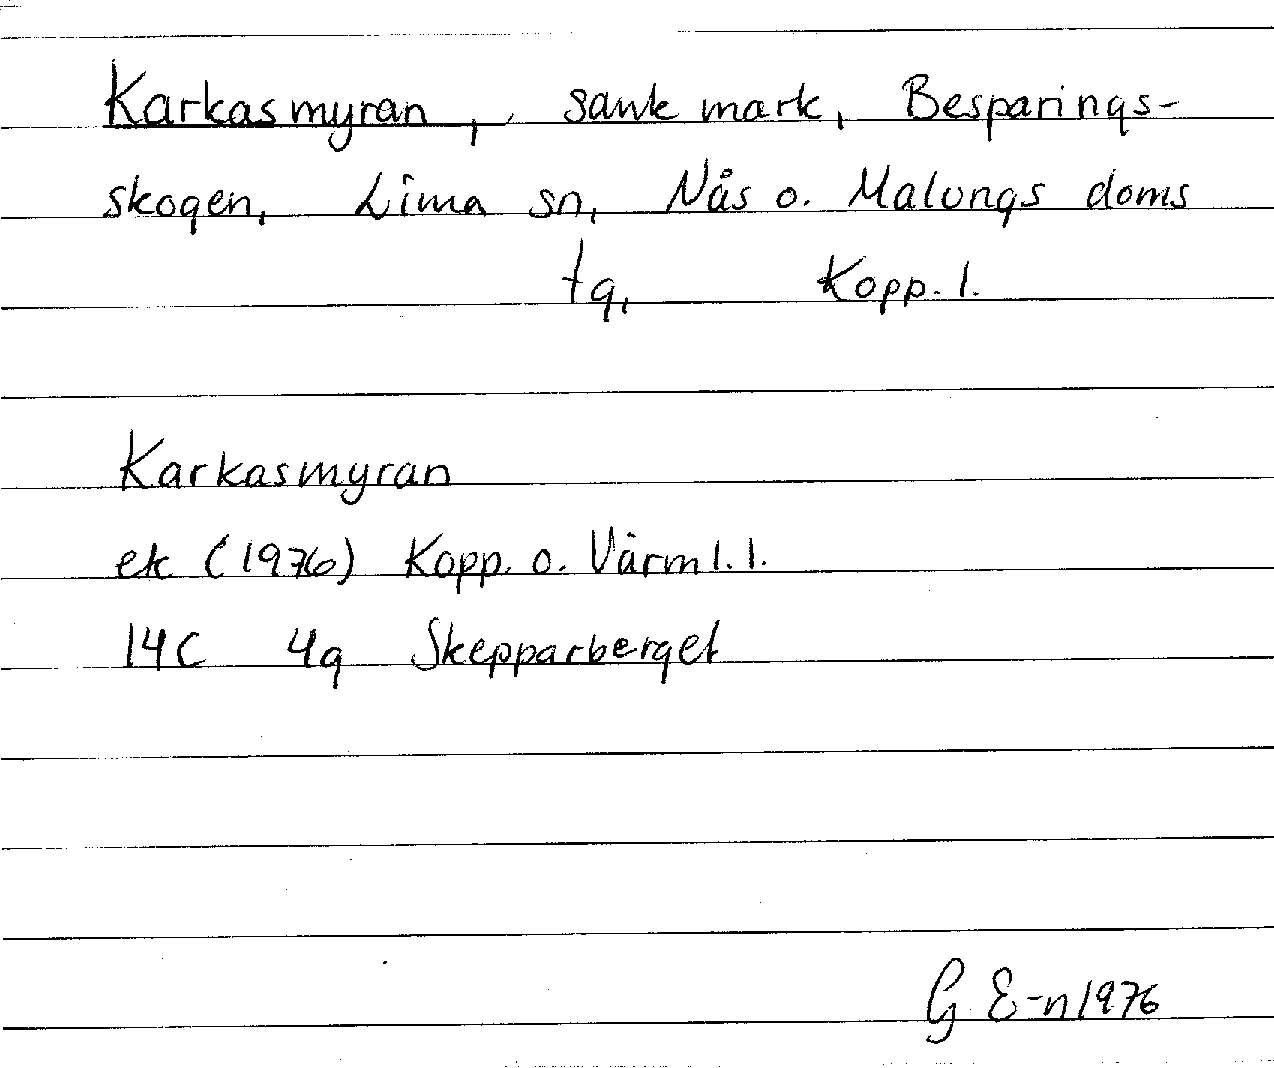 Karkasmyran, sank mark, Besparings-
skogen, Lima sn, Nås o. Malungs doms
tg, Kopp. l.
Karkasmyran
ek (1976) Kopp. o. Värml. l.
14C 4g Skepparberget
G E-n 1976